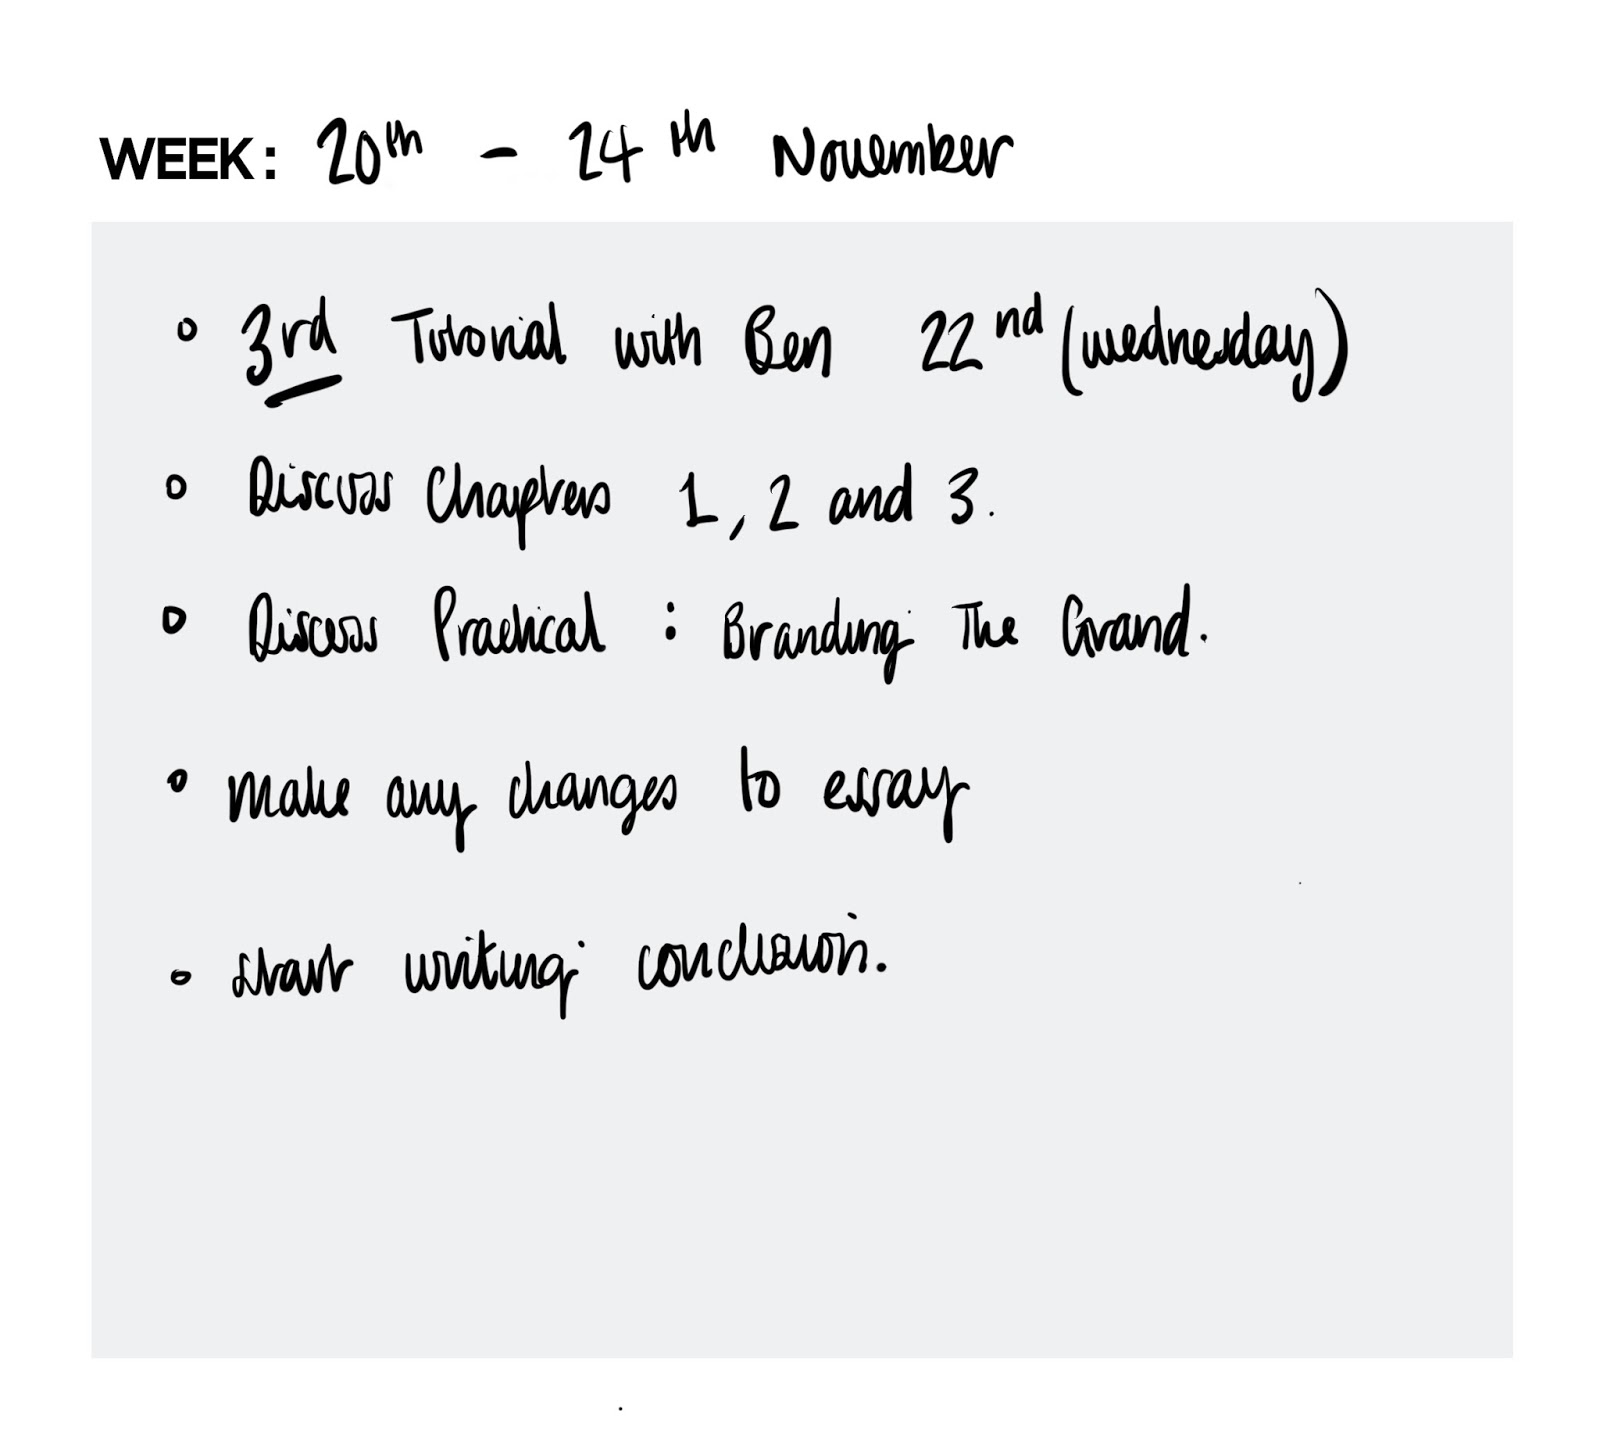 WEEK: 20th - 24th November
3rd Tutorial with Ben 22nd (wednesday)
Discuss Chapters 1, 2 and 3.
Discuss Practical : Branding The Grand.
make any changes to essay
start writing conclusion.